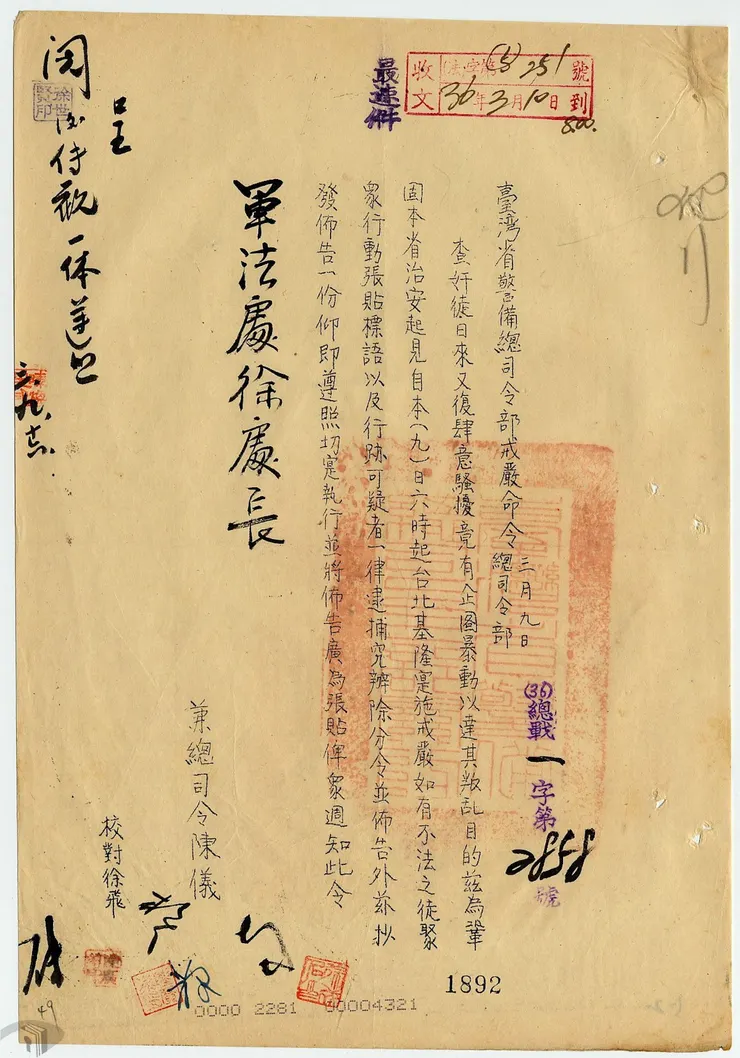 收文
號
36年3月10日到
8.00.
最速件
臺灣省警備總司令部戒嚴命令
三月九日
總司令部
(36)總戰一字第
號
查奸徒日來又復肆意騷擾竟有企圖暴動以達其叛乱目的茲為鞏
固本省治安起見自本(九)日六時起台北基隆寔施戒嚴如有不法之徒聚
眾行動張貼標語以及行跡可疑者一律逮捕究辦除分令並佈告外茲抄
發佈告一份仰即遵照切寔執行並將佈告廣為張貼俾眾週知此令
軍法處徐處長
兼總司令陳儀
校對徐飛
呈
閱
1892
0000 2281 00004321
49